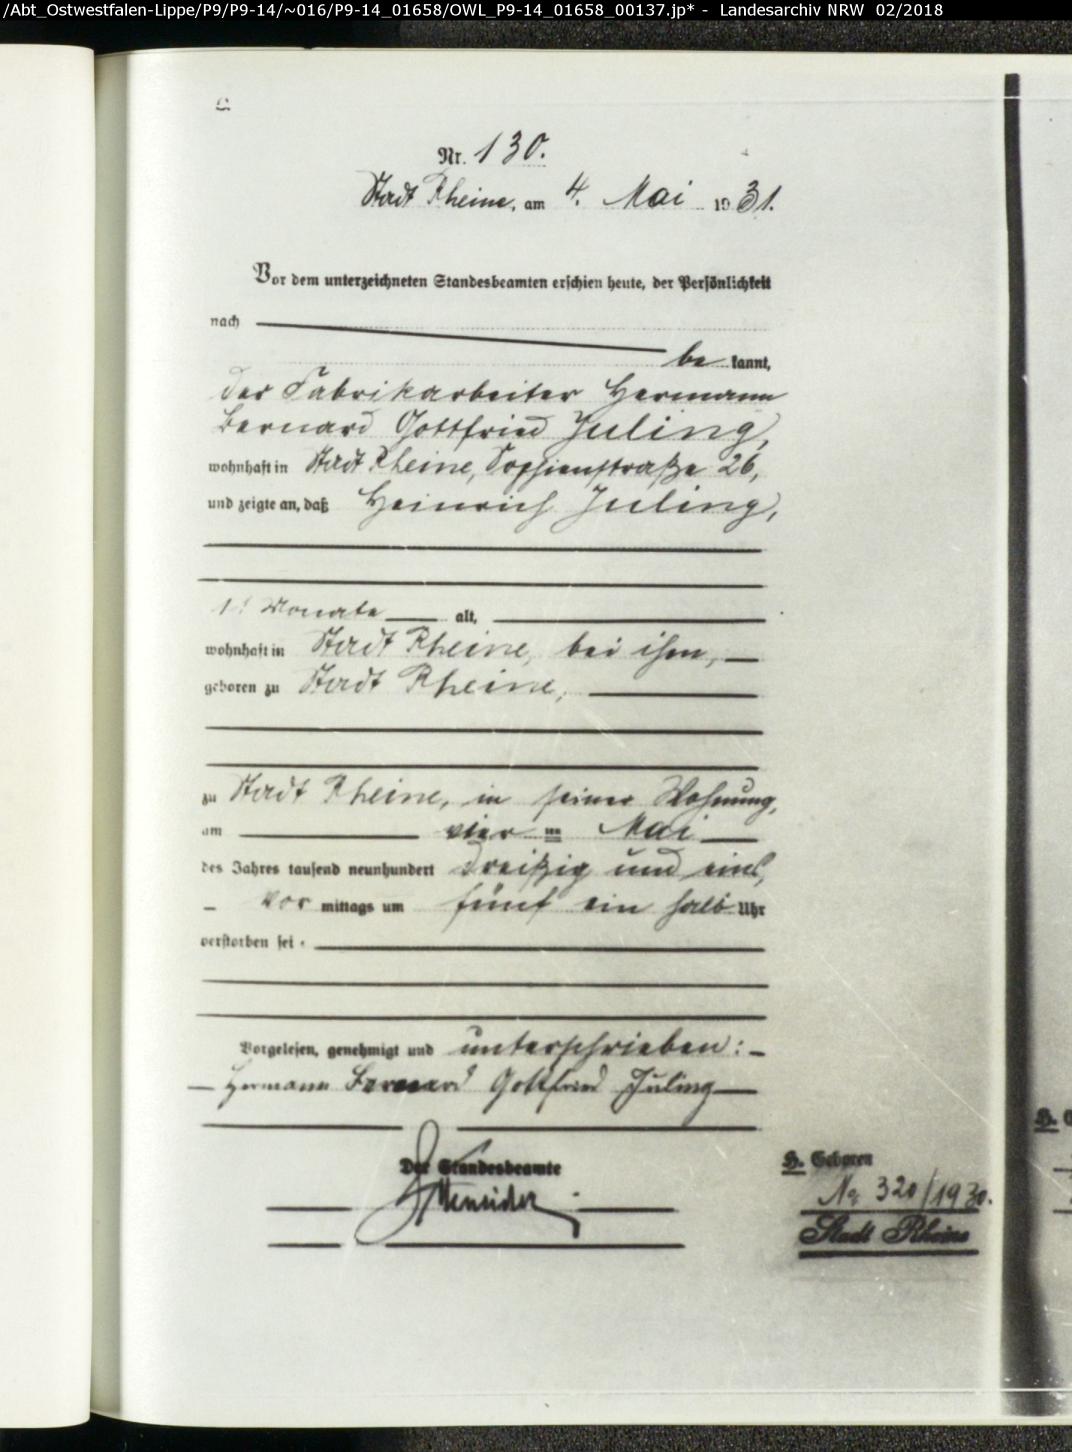 /Abt_Ostwestfalen-Lippe/P9/P9-14/~016/P9-14_01658/OWL_P9-14_01658_00137.jp* - Landesarchiv NRW 02/2018
C.
Nr. 130.
Stadt Rheine, am 4. Mai 1931.
Vor dem unterzeichneten Standesbeamten erschien heute, der Persönlichkeit
nach
be kannt,
der Fabrikarbeiter Hermann
Bernard Gottfried Juling,
wohnhaft in Stadt Rheine, Sophienstraße 26,
und zeigte an, daß Heinrich Juling,
Monate alt,
wohnhaft in Stadt Rheine, bei ihm,
geboren zu Stadt Rheine,
zu Stadt Rheine, in seiner Wohnung,
am vier ten Mai
des Jahres tausend neunhundert dreißig und eins,
vor mittags um fünf ein halb Uhr
verstorben sei.
Vorgelesen, genehmigt und unterschrieben:
Hermann Bernard Gottfried Juling
Der Standesbeamte
H. Geboren
No 320/1930.
Stadt Rheine